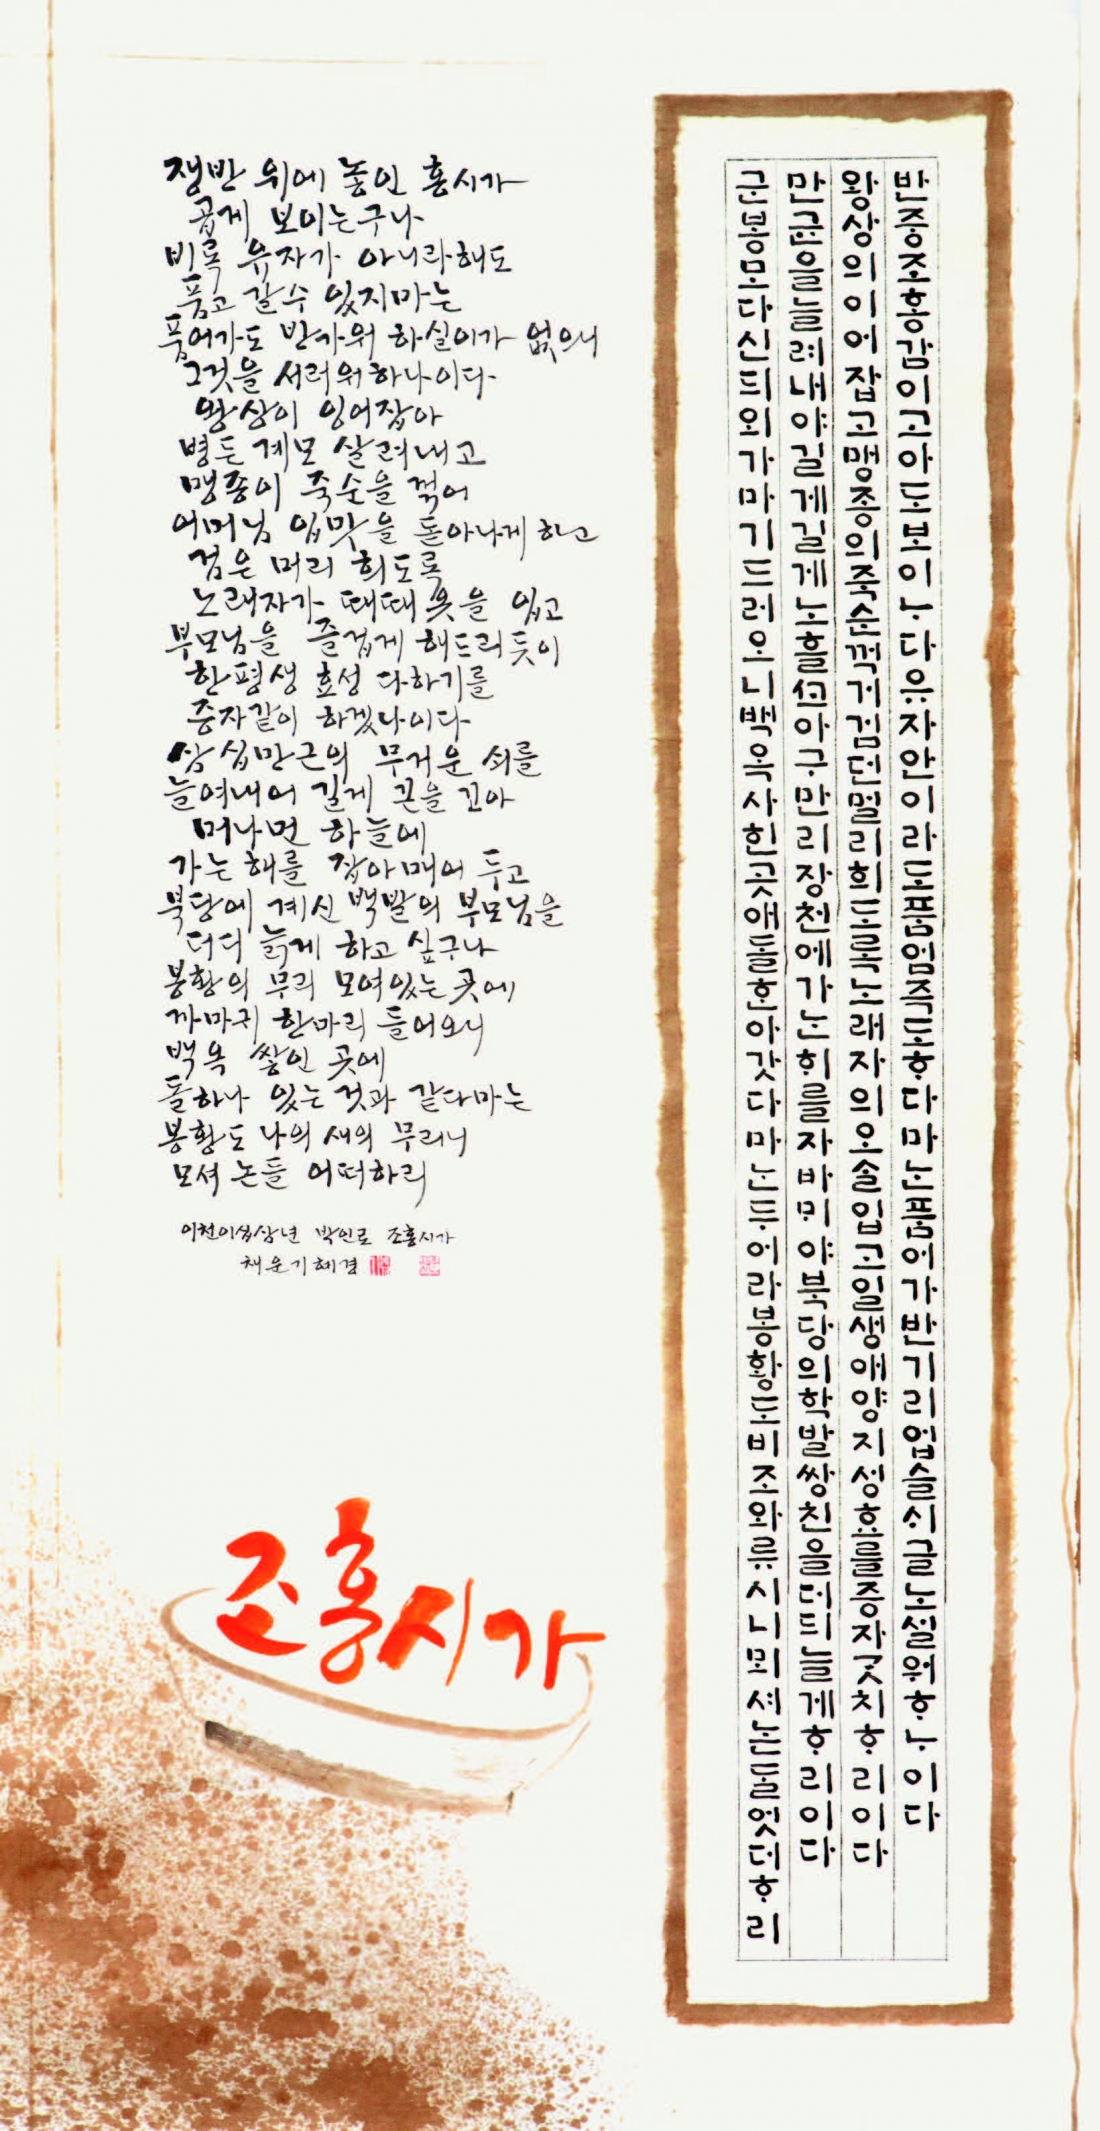 쟁반 위에 놓인 홍시가
곱게 보이는구나
비록 유자가 아니라해도
품고 갈수 있지마는
품어가도 반가워 하실이가 없으니
그것을 서러워하나이다
왕상이 잉어잡아
병든 계모 살려내고
맹종이 죽순을 꺾어
어머님 입맛을 돋아나게 하고
검은 머리 희도록
노래자가 때때옷을 입고
부모님을 즐겁게 해드리듯이
한평생 효성 다하기를
증자같이 하겠나이다
삼십만근의 무거운 쇠를
늘여내어 길게 끈을 꼬아
머나먼 하늘에
가는 해를 잡아매어 두고
북당에 계신 백발의 부모님을
더디 늙게 하고 싶구나
봉황의 무리 모여있는 곳에
까마귀 한마리 들어오니
백옥 쌓인 곳에
돌하나 있는 것과 같다마는
봉황도 나의 새의 무리니
모셔 논들 어떠하리
이천이십삼년 박인로 조홍시가
채운 기혜경
조홍시가
반즁조홍감이고아도보이ᄂᆞ다유자안이라도품엄즉도ᄒᆞ다마ᄂᆞᆫ품어가반기리업슬ᄉᆡ글노셜워ᄒᆞᄂᆞ이다
왕상의이어잡고맹종의죽순꺽거검던멀리희도록노래자의오솔입고일생애양지성효를증자ᄀᆞᆺ치ᄒᆞ리이다
만균을늘려내야길게길게노흘ᄭᅩ아구만리장천에가ᄂᆞᆫᄒᆡ를자바ᄆᆡ야북당의학발쌍친을더듸늘게ᄒᆞ리이다
군봉모다신듸외가마기드러오니백옥사힌곳애돌ᄒᆞᆫ아갓다마ᄂᆞᆫ두어라봉황도비조와류시니뫼셔논들엇더ᄒᆞ리